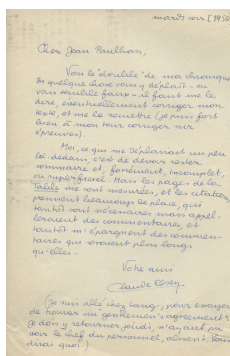 mardi soir [1950
Cher Jean Paulhan,
Voici le "double" de ma chronique.
Si quelque chose vous y déplaît - ou
vous semble faux - il faut me le
dire, éventuellement corriger mon
texte, et me le remettre (je puis fort
bien à mon tour corriger sur
épreuves).
Moi, ce qui me déplairait un peu
là-dedans, c'est de devoir rester
sommaire et, forcément, incomplet,
ou superficiel. Mais les pages de la
Table me sont mesurées, et les citations
prennent beaucoup de place, qui
tantôt sont nécessaires mais appel-
leraient des commentaires, et
tantôt m'épargnent des commen-
taires qui seraient plus longs
qu'elles -
Votre ami
Claude Elsen
(Je suis allé chez Lang, pour essayer
de trouver un gentlemen's agreement ;
je dois y retourner jeudi, n'ayant pu
voir le chef du personnel, absent. Vous
dirai quoi.)